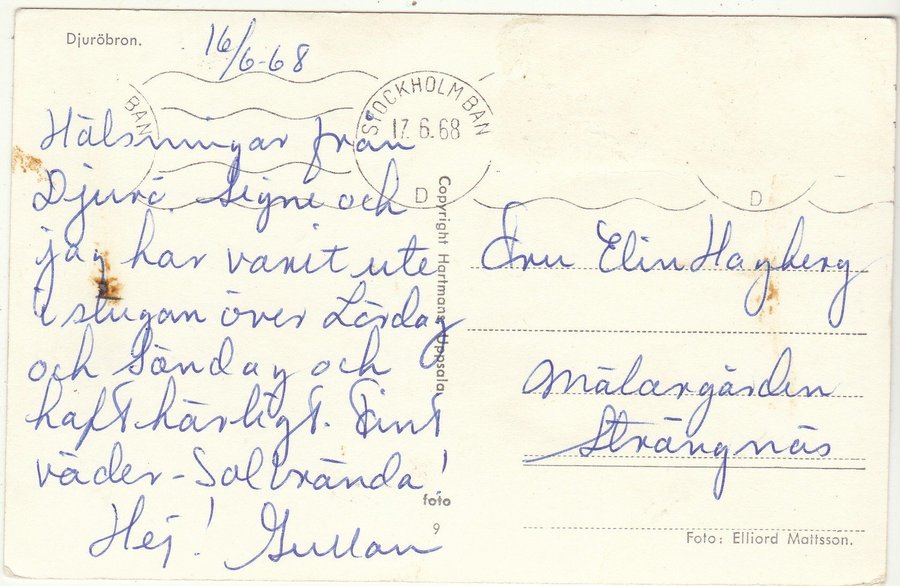 Djuröbron.
16/6-68
BAN
STOCKHOLM BAN
17.6.68
D
D
Hälsningar från
Djurö. Signe och
jag har varit ute
i stugan över Lördag
och Söndag och
haft härligt. Fint
väder - Solbrända!
Hej! Gullan
Copyright Hartmans Uppsala
foto
9
Fru Elin Hagberg
Mälargården
Strängnäs
Foto: Elliord Mattsson.